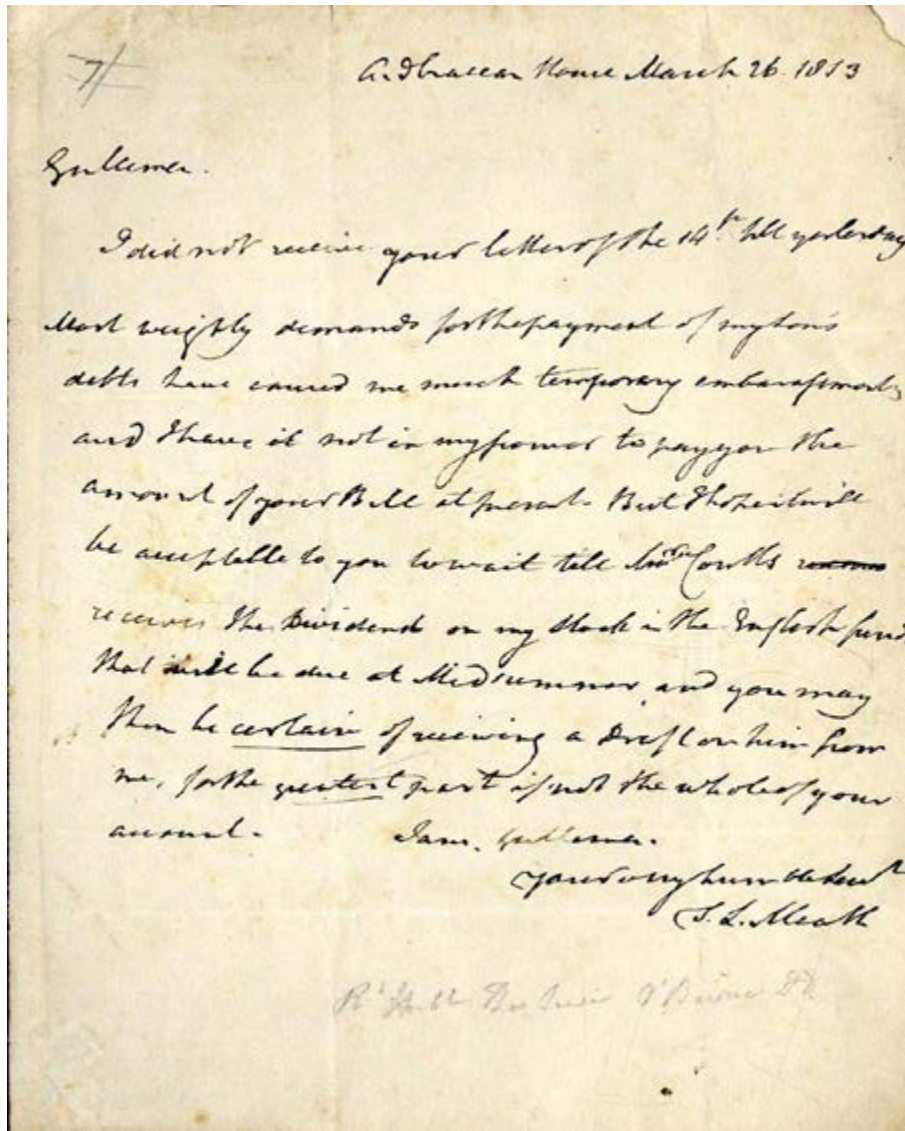 7/
Ardbraccan House March 26. 1813
Gentlemen.
I did not receive your letter of the 14th. till yesterday
Most weighty demands for the payment of my son's
debts have caused me much temporary embarassment,
and I have it not in my power to pay you the
amount of your Bill at present. But I hope it will
be acceptable to you to wait till Coutts
receives the Dividend on my Stock in the English fund
that will be due at Midsummer, and you may
then be certain of receiving a Draft on him from
me, for the greatest part if not the whole of your
account. I am, Gentlemen.
your very humble Servt
T. L. Meath
Rt Honble Thos Lewis O'Beirne DD.